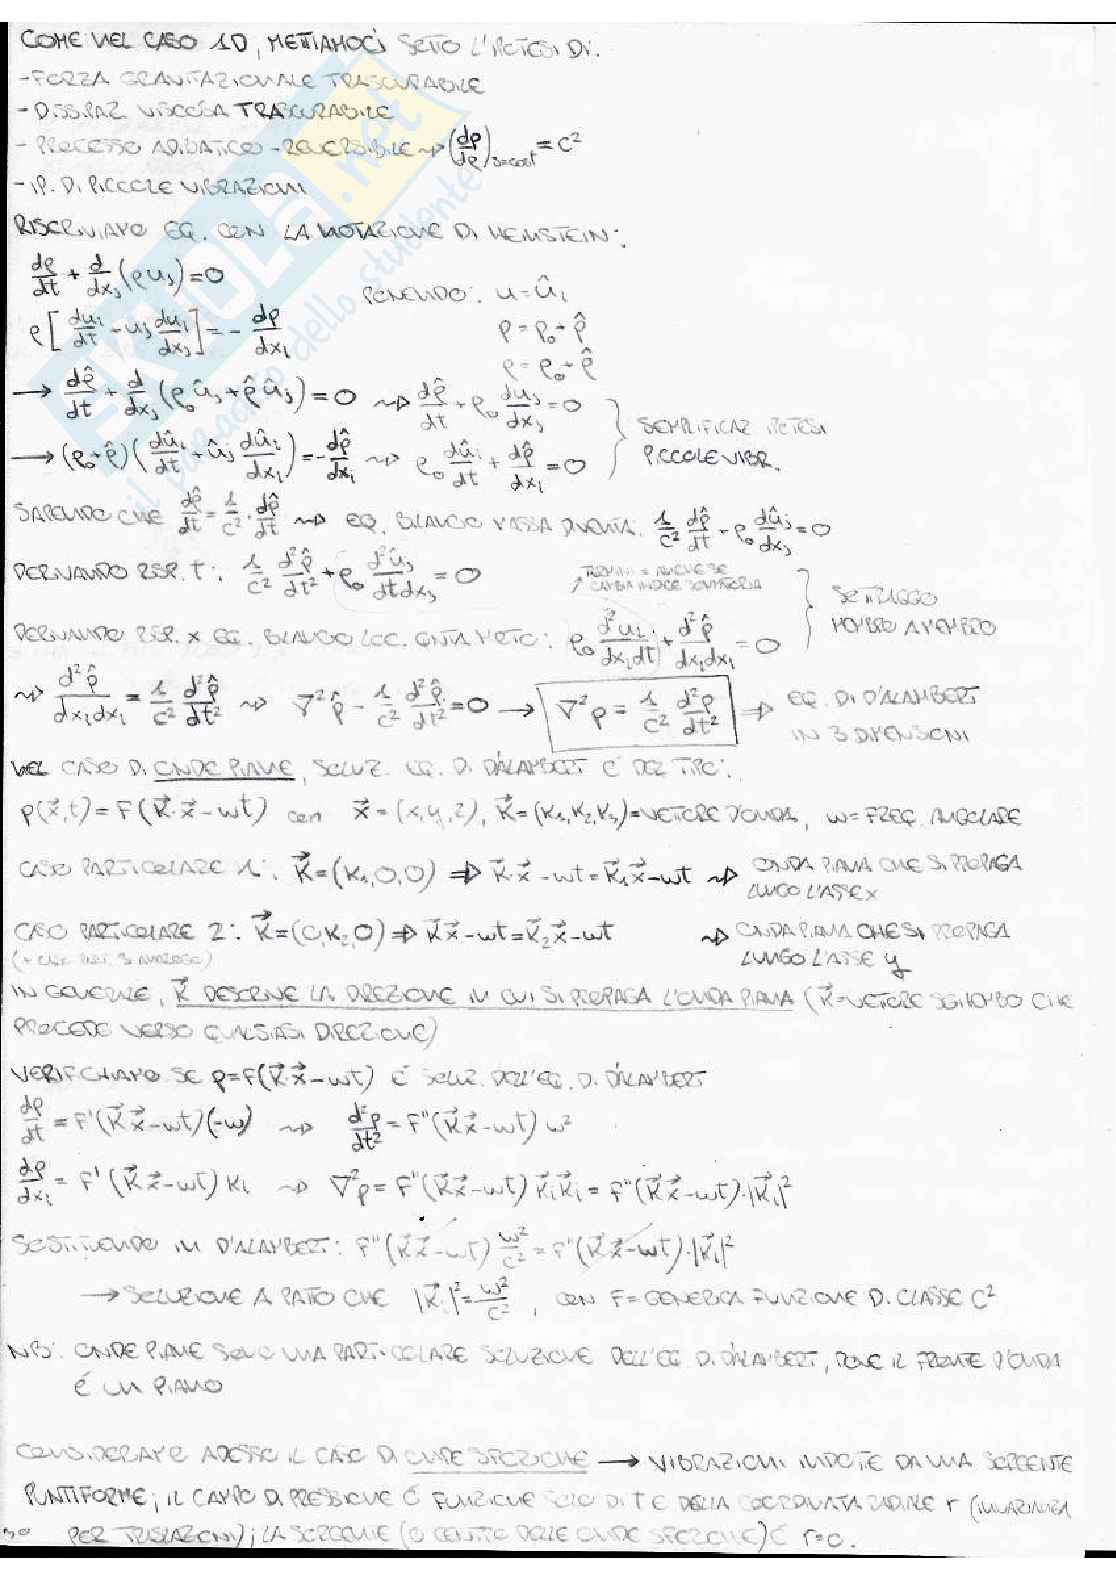 COME NEL CASO 1D, METTIAMOCI SOTTO L'IPOTESI DI:
-FORZA GRAVITAZIONALE TRASCURABILE
-DISSIPAZ. VISCOSA TRASCURABILE
- PROCESSO ADIABATICO-REVERSIBILE ⇝ (dp/dρ)s=cost = c²
-IP. DI PICCOLE VIBRAZIONI
RISCRIVIAMO EQ. CON LA NOTAZIONE DI HEINSTEIN:
dρ/dt + d/dxj (ρuj)=0
PONENDO: u=ûi
ρ[dui/dt + uj dui/dxj] = - dp/dxi
p=p₀+p̂
ρ=ρ₀+ρ̂
→ dρ̂/dt + d/dxj (ρ₀ûj+ρ̂ûj)=0 ⇝ dρ̂/dt + ρ₀ duj/dxj = 0
→ (ρ₀+ρ̂)(dûi/dt + ûj dûi/dxj) = -dp̂/dxi ⇝ ρ₀ dûi/dt + dp̂/dxi = 0
SEMPLIFICAZ. IPOTESI
PICCOLE VIBR.
SAPENDO CHE dρ̂/dt = 1/c² · dp̂/dt ⇝ EQ. BILANCIO MASSA DIVENTA: 1/c² dp̂/dt + ρ₀ dûj/dxj = 0
DERIVANDO RISP. t: 1/c² d²p̂/dt² + ρ₀ d²ûj/dtdxj = 0
TERMINI = ANCHE SE
CAMBIA INDICE SOMMATORIA
DERIVANDO RISP. x EQ. BILANCIO LOC. QNTA' MOTO: ρ₀ d²ui/dxidt + d²p̂/dxidxi = 0
SOTTRAGGO
MEMBRO A MEMBRO
⇝ d²p̂/dxidxi = 1/c² d²p̂/dt² ⇝ ∇²p̂ - 1/c² d²p̂/dt² = 0 → ∇²p = 1/c² d²p/dt² ⇒ EQ. DI D'ALAMBERT
IN 3 DIMENSIONI
NEL CASO DI ONDE PIANE, SOLUZ. EQ. DI D'ALAMBERT È DEL TIPO:
p(x⃗,t)=F(K⃗·x⃗-wt) con x⃗=(x,y,z), K⃗=(K₁,K₂,K₃)=VETTORE D'ONDA, w=FREQ. ANGOLARE
CASO PARTICOLARE 1: K⃗=(K₁,0,0) ⇒ K⃗·x⃗-wt=K⃗₁x⃗-wt ⇝ ONDA PIANA CHE SI PROPAGA
LUNGO L'ASSE x
CASO PARTICOLARE 2: K⃗=(0,K₂,0) ⇒ K⃗x⃗-wt=K⃗₂x⃗-wt ⇝ ONDA PIANA CHE SI PROPAGA
(+ CASO PART. 3 ANALOGO)
LUNGO L'ASSE y
IN GENERALE, K⃗ DESCRIVE LA DIREZIONE IN CUI SI PROPAGA L'ONDA PIANA (K⃗=VETTORE SGHEMBO CHE
PROCEDE VERSO QUALSIASI DIREZIONE)
VERIFICHIAMO SE p=F(K⃗·x⃗-wt) È SOLUZ. DELL'EQ. DI D'ALAMBERT
dp/dt = F'(K⃗x⃗-wt)(-w) ⇝ d²p/dt² = F''(K⃗x⃗-wt) w²
dp/dxi = F'(K⃗x⃗-wt) Ki ⇝ ∇²p = F''(K⃗x⃗-wt) K⃗iK⃗i = F''(K⃗x⃗-wt)·|K⃗i|²
SOSTITUENDO IN D'ALAMBERT: F''(K⃗x⃗-wt) w²/c² = F''(K⃗x⃗-wt)·|K⃗i|²
→ SOLUZIONE A PATTO CHE |K⃗i|² = w²/c², CON F=GENERICA FUNZIONE DI CLASSE C²
NB: ONDE PIANE SONO UNA PARTICOLARE SOLUZIONE DELL'EQ. DI D'ALAMBERT, DOVE IL FRONTE D'ONDA
È UN PIANO
CONSIDERIAMO ADESSO IL CASO DI ONDE SFERICHE → VIBRAZIONI INDOTTE DA UNA SORGENTE
PUNTIFORME; IL CAMPO DI PRESSIONE È FUNZIONE SOLO DI t E DELLA COORDINATA RADIALE r (INVARIANZA
PER TRASLAZIONI); LA SORGENTE (O CENTRO DELLE ONDE SFERICHE) È r=0.
SKUOLA.net
il paradiso dello studente